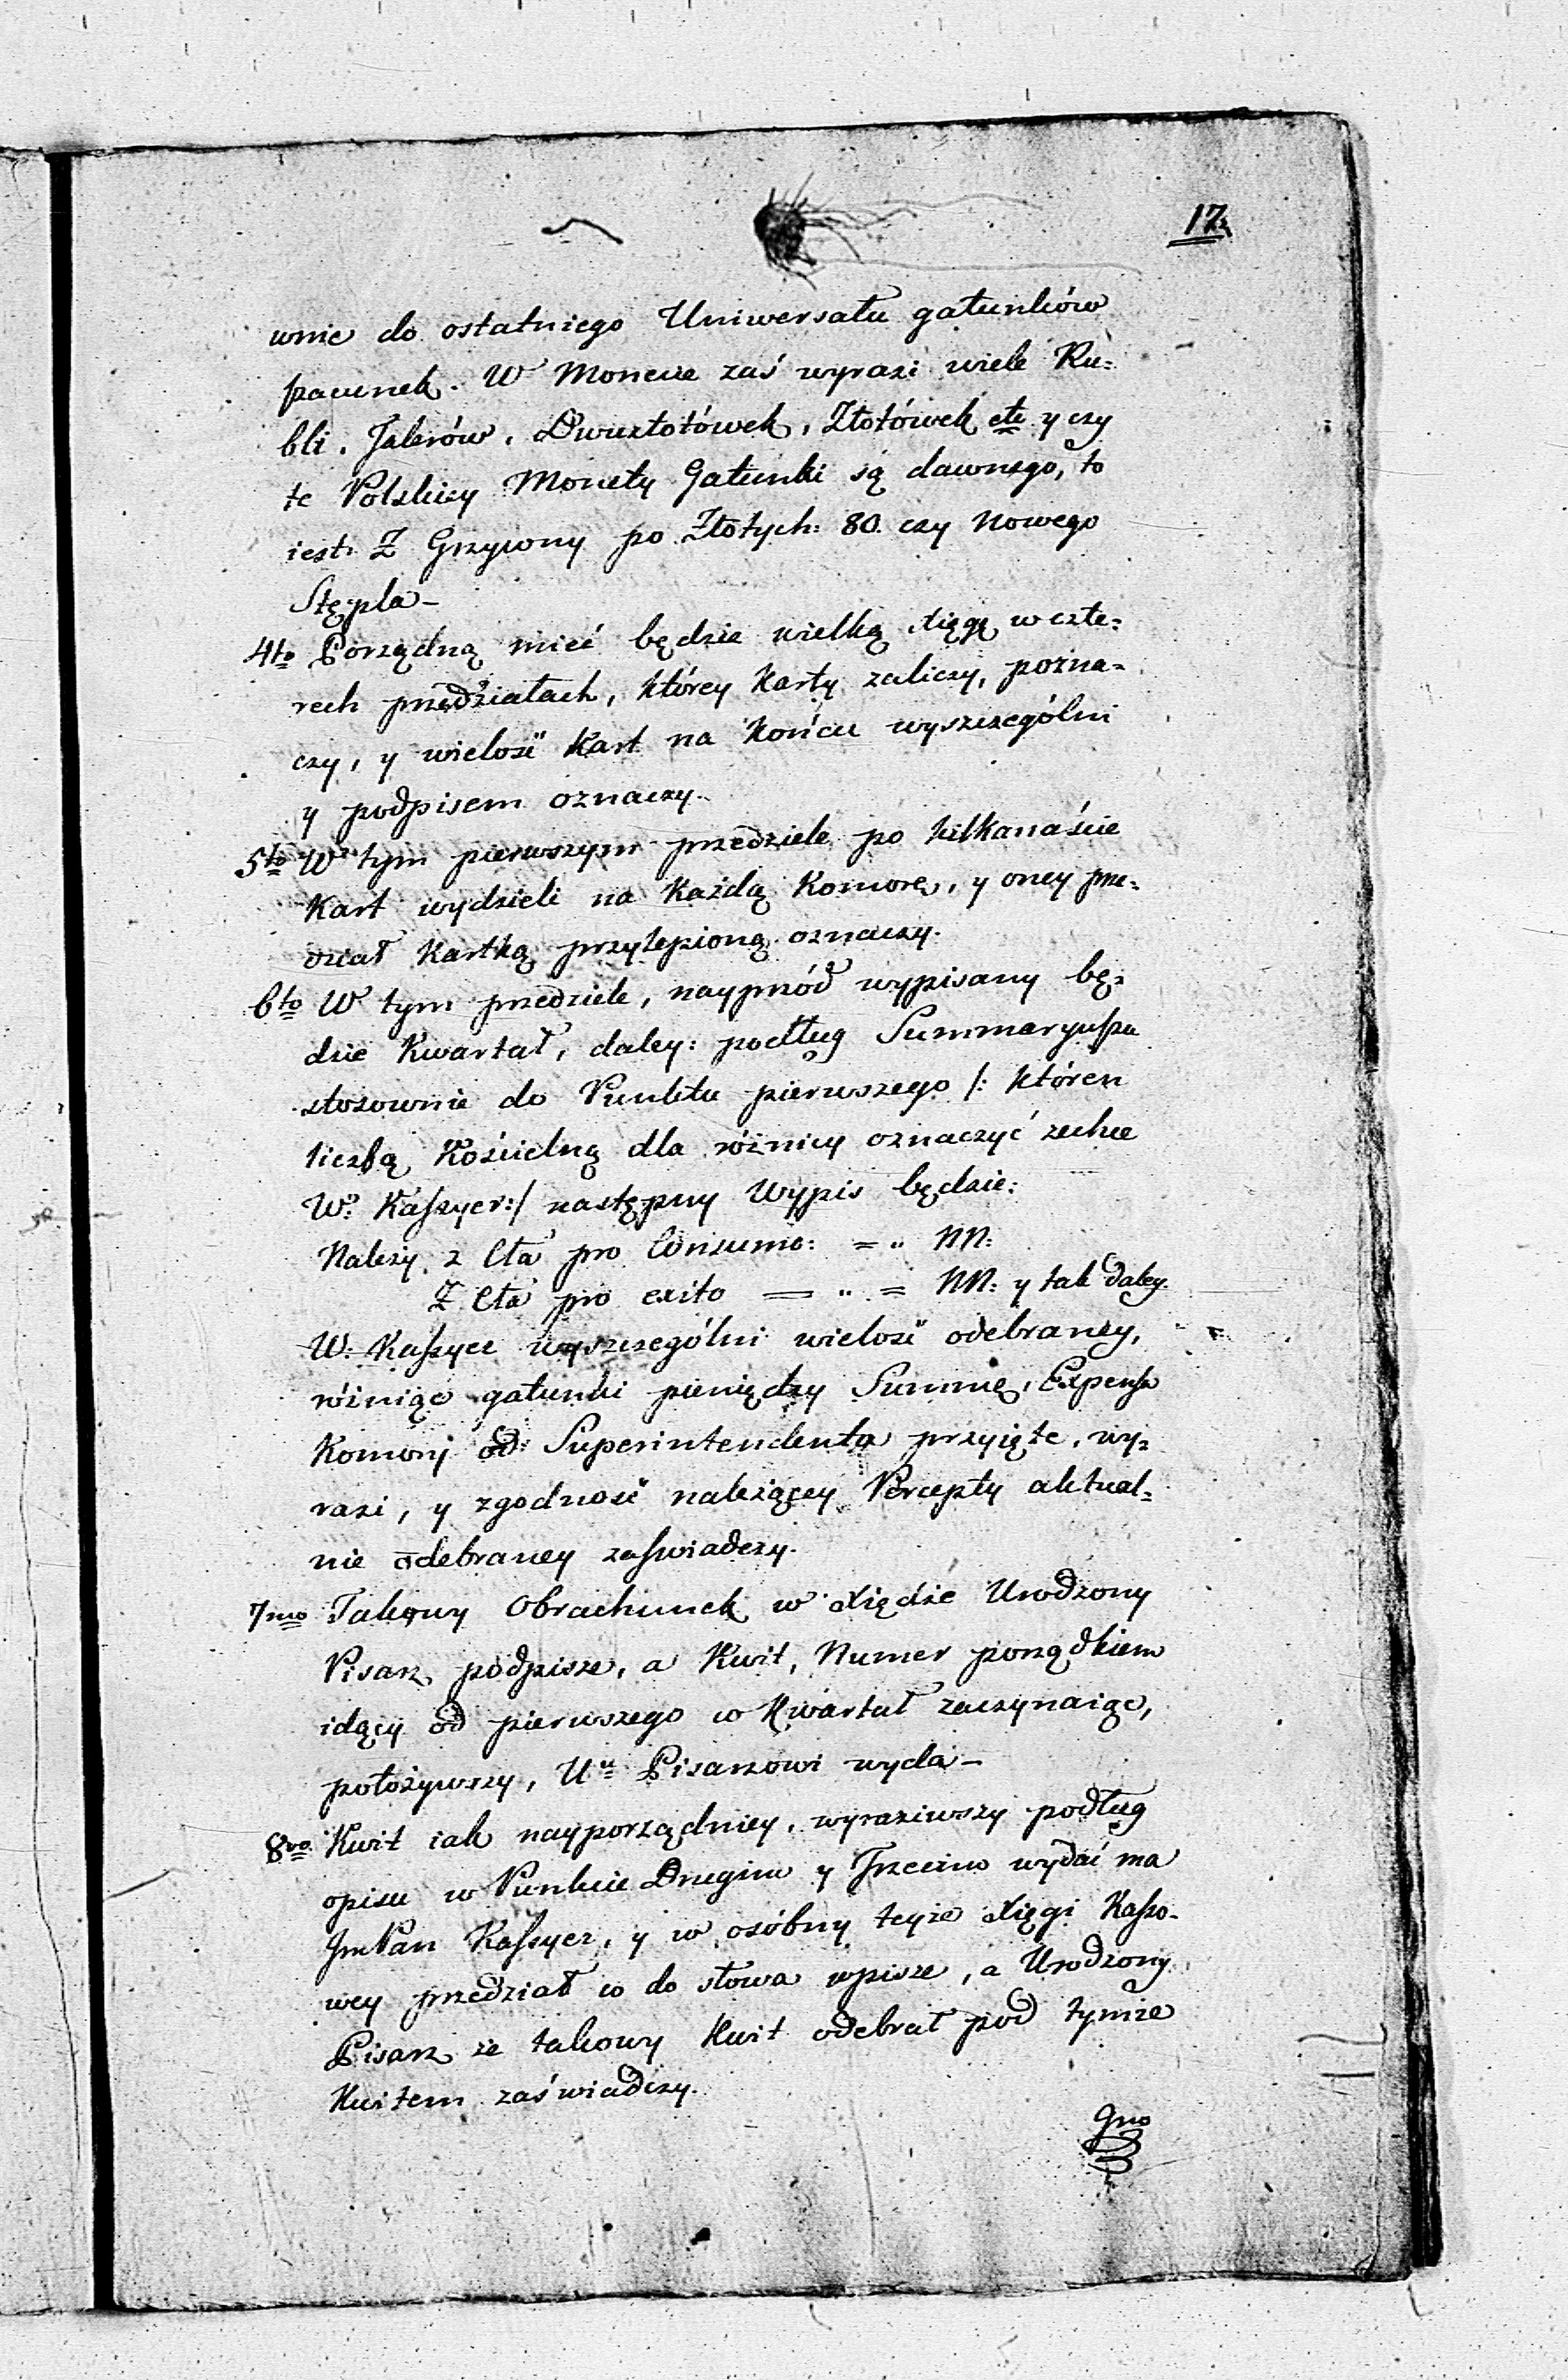 17.
wnie do ostatniego Uniwersału gatunków
szacunek. W Monecie zaś wyrazi wiele Ru-
bli, Talerów, Dwuzłotówek, Złotówek etc y czy
te Polskiey Monety Gatunki są dawnego, to
iest: Z Grzywny po Złotych: 80. czy Nowego
Stępla –
4to Porządną mieć będzie wielką Xięgę w czte-
rech przedziałach, którey Karty zaliczy, pozna-
czy, y wielość Kart na Końcu wyszczególni
y podpisem oznaczy.
5to W tym pierwszym przedziele po kilkanaście
Kart wydzieli na Każdą Komorę, y oney prze-
dział Kartką przylepioną oznaczy.
6to W tym przedziele, nayprzód wypisany bę-
dzie Kwartał, daley: podług Summaryusza
stosownie do Punktu pierwszego /: któren
liczbą Kościelną dla różnicy oznaczyć zechce
W. Kassyer :/ następny Wypis będzie:
Należy z Cła pro Consumo: = „ NN:
Z Cła pro exito = „ = NN: y tak daley.
W. Kassyer wyszczególni wielość odebraney,
różniąc gatunki pieniędzy Summę, Expensa
Komory od Superintendenta przyięte, wy-
razi, y zgodność należącey Percepty aktual-
nie odebraney zaświadczy.
7mo Takowy Obrachunek w Xiędze Urodzony
Pisarz podpisze, a Kwit, Numer porządkiem
idący od pierwszego co Kwartał zaczynaiąc,
położywszy, Uu Pisarzowi wyda –
8vo Kwit iak nayporządniey, wyraziwszy podług
opisu w Punkcie Drugim y Trzecim wydać ma
JmPan Kassyer, y w osóbny teyże Xięgi Kasso-
wey przedział co do słowa wpisze, a Urodzony
Pisarz że takowy Kwit odebrał pod tymże
Kwitem zaświadczy.
9no